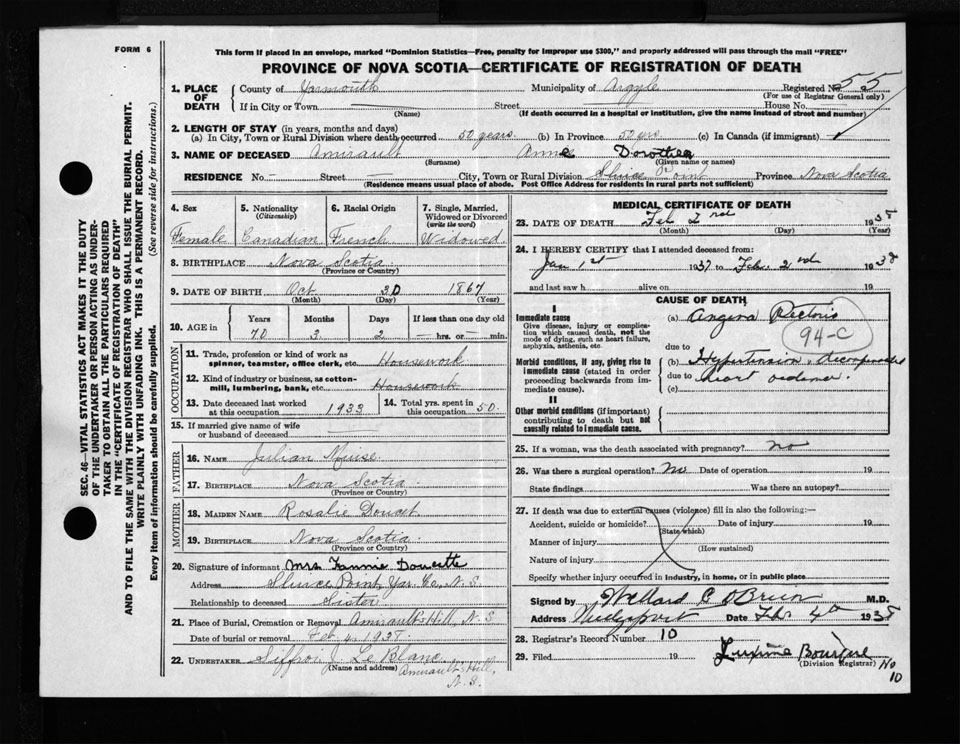 FORM 6
This form if placed in an envelope, marked "Dominion Statistics—Free, penalty for improper use $300," and properly addressed will pass through the mail "FREE"
PROVINCE OF NOVA SCOTIA—CERTIFICATE OF REGISTRATION OF DEATH
SEC. 46—VITAL STATISTICS ACT MAKES IT THE DUTY
OF THE UNDERTAKER OR PERSON ACTING AS UNDER-
TAKER TO OBTAIN ALL THE PARTICULARS REQUIRED
IN THE "CERTIFICATE OF REGISTRATION OF DEATH"
AND TO FILE THE SAME WITH THE DIVISION REGISTRAR WHO SHALL ISSUE THE BURIAL PERMIT.
WRITE PLAINLY WITH UNFADING INK. THIS IS A PERMANENT RECORD.
Every item of information should be carefully supplied. (See reverse side for instructions.)
1. PLACE OF DEATH County of Yarmouth Municipality of Argyle Registered No 55
(For use of Registrar General only)
If in City or Town Street House No.
(Name) (If death occurred in a hospital or institution, give the name instead of street and number)
2. LENGTH OF STAY (in years, months and days)
(a) In City, Town or Rural Division where death occurred 50 years. (b) In Province 50 yrs. (c) In Canada (if immigrant) —
3. NAME OF DECEASED Amirault Anne Dorothea
(Surname) (Given name or names)
RESIDENCE No. — Street — City, Town or Rural Division Sluice Point Province Nova Scotia
(Residence means usual place of abode. Post Office Address for residents in rural parts not sufficient)
4. Sex 5. Nationality (Citizenship) 6. Racial Origin 7. Single, Married, Widowed or Divorced (write the word)
Female Canadian French Widowed
8. BIRTHPLACE Nova Scotia
(Province or Country)
9. DATE OF BIRTH Oct 30 1867
(Month) (Day) (Year)
10. AGE in Years Months Days If less than one day old
70 3 2 hrs. or — min.
OCCUPATION
11. Trade, profession or kind of work as spinner, teamster, office clerk, etc. Housework
12. Kind of industry or business, as cotton-mill, lumbering, bank, etc. Housework
13. Date deceased last worked at this occupation 1933 14. Total yrs. spent in this occupation 50.
15. If married give name of wife or husband of deceased
FATHER
16. Name Julian Muise
17. Birthplace Nova Scotia
(Province or Country)
MOTHER
18. Maiden Name Rosalie Doucet
19. Birthplace Nova Scotia
(Province or Country)
20. Signature of informant Mrs Fannie Doucette
Address Sluice Point Yar. Co, N.S.
Relationship to deceased Sister
21. Place of Burial, Cremation or Removal Amirault's Hill, N.S
Date of burial or removal Feb 4, 1938
22. UNDERTAKER Siffroi J. Le Blanc
(Name and address) Amirault's Hill,
N.S.
MEDICAL CERTIFICATE OF DEATH
23. DATE OF DEATH Feb 2nd 1938
(Month) (Day) (Year)
24. I HEREBY CERTIFY that I attended deceased from:
Jan 1st 1937 to Feb. 2nd 1938
and last saw h alive on 19
CAUSE OF DEATH
I
Immediate cause
Give disease, injury or complication which caused death, not the mode of dying, such as heart failure, asphyxia, asthenia, etc.
(a) Angina Pectoris
94-C
due to
Morbid conditions, if any, giving rise to immediate cause (stated in order proceeding backwards from immediate cause).
(b) Hypertension,
due to heart
(c)
II
Other morbid conditions (if important) contributing to death but not causally related to immediate cause.
25. If a woman, was the death associated with pregnancy? no
26. Was there a surgical operation? No Date of operation 19
State findings Was there an autopsy?
27. If death was due to external causes (violence) fill in also the following:—
Accident, suicide or homicide? Date of injury 19
(State which)
Manner of injury
(How sustained)
Nature of injury
Specify whether injury occurred in industry, in home, or in public place
Signed by Willard C O'Brien M.D.
Address Wedgeport Date Feb 4th 1938
28. Registrar's Record Number 10
29. Filed 19 Bourque
(Division Registrar) No
10